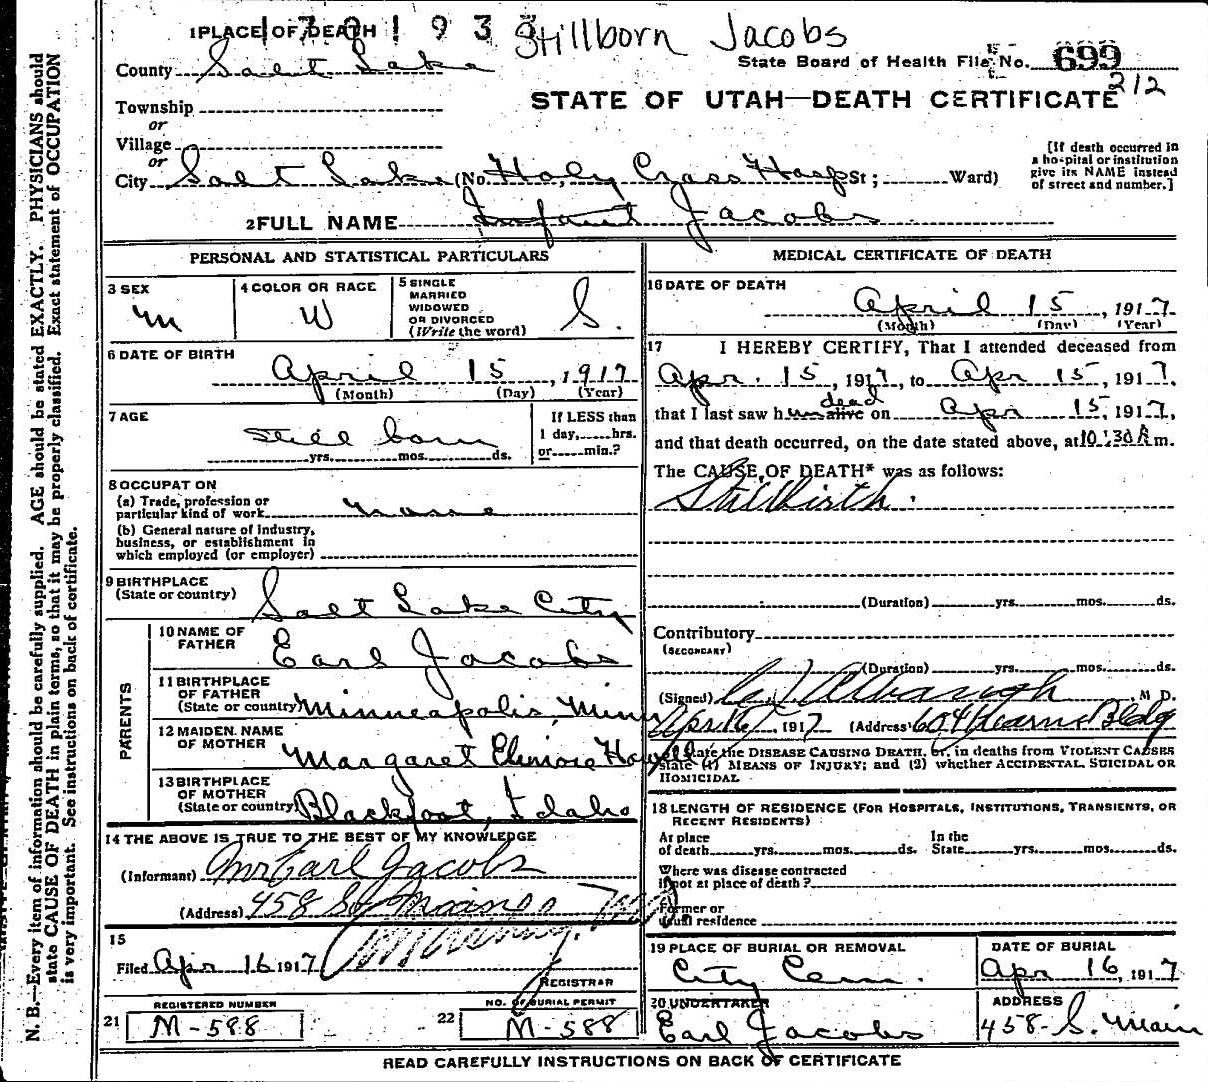 1791933 Stillborn Jacobs
1 PLACE OF DEATH
State Board of Health File No. 699
212
County Salt Lake
STATE OF UTAH—DEATH CERTIFICATE
Township
or
Village
or
City Salt Lake (No. Holy Cross Hosp St; Ward)
[If death occurred in
a hospital or institution
give its NAME instead
of street and number.]
2 FULL NAME Infant Jacobs
PERSONAL AND STATISTICAL PARTICULARS
3 SEX
M
4 COLOR OR RACE
W
5 SINGLE
MARRIED
WIDOWED
OR DIVORCED
(Write the word)
S.
6 DATE OF BIRTH
April 15, 1917
(Month) (Day) (Year)
7 AGE
still born
yrs. mos. ds.
If LESS than
1 day, hrs.
or min.?
8 OCCUPAT ON
(a) Trade, profession or
particular kind of work none
(b) General nature of industry,
business, or establishment in
which employed (or employer)
9 BIRTHPLACE
(State or country) Salt Lake City
PARENTS
10 NAME OF
FATHER Earl Jacobs
11 BIRTHPLACE
OF FATHER
(State or country) Minneapolis, Minn
12 MAIDEN NAME
OF MOTHER Margaret Elinore
13 BIRTHPLACE
OF MOTHER
(State or country) Blackfoot, Idaho
14 THE ABOVE IS TRUE TO THE BEST OF MY KNOWLEDGE
(Informant) Mr Earl Jacobs
(Address) 458 So Main
15
Filed Apr 16 1917
REGISTRAR
REGISTERED NUMBER
21 M-588
NO. OF BURIAL PERMIT
22 M-588
MEDICAL CERTIFICATE OF DEATH
16 DATE OF DEATH
April 15, 1917
(Month) (Day) (Year)
17 I HEREBY CERTIFY, That I attended deceased from
Apr. 15, 1917, to Apr 15, 1917.
dead
that I last saw him alive on Apr 15, 1917,
and that death occurred, on the date stated above, at 10:30 A m.
The CAUSE OF DEATH* was as follows:
Stillbirth.
(Duration) yrs. mos. ds.
Contributory
(SECONDARY)
(Duration) yrs. mos. ds.
(Signed) Albaugh, M D.
Apr 16, 1917 (Address) 604 Kearns Bldg
*State the DISEASE CAUSING DEATH, or, in deaths from VIOLENT CAUSES
state (1) MEANS OF INJURY; and (2) whether ACCIDENTAL, SUICIDAL OR
HOMICIDAL
18 LENGTH OF RESIDENCE (FOR HOSPITALS, INSTITUTIONS, TRANSIENTS, OR
RECENT RESIDENTS)
At place
of death yrs. mos. ds.
In the
State yrs. mos. ds.
Where was disease contracted
if not at place of death?
Former or
usual residence
19 PLACE OF BURIAL OR REMOVAL
City Cem.
DATE OF BURIAL
Apr 16, 1917
20 UNDERTAKER
Earl Jacobs
ADDRESS
458- S. Main
READ CAREFULLY INSTRUCTIONS ON BACK OF CERTIFICATE
N. B.—Every item of information should be carefully supplied. AGE should be stated EXACTLY. PHYSICIANS should
state CAUSE OF DEATH in plain terms, so that it may be properly classified. Exact statement of OCCUPATION
is very important. See instructions on back of certificate.